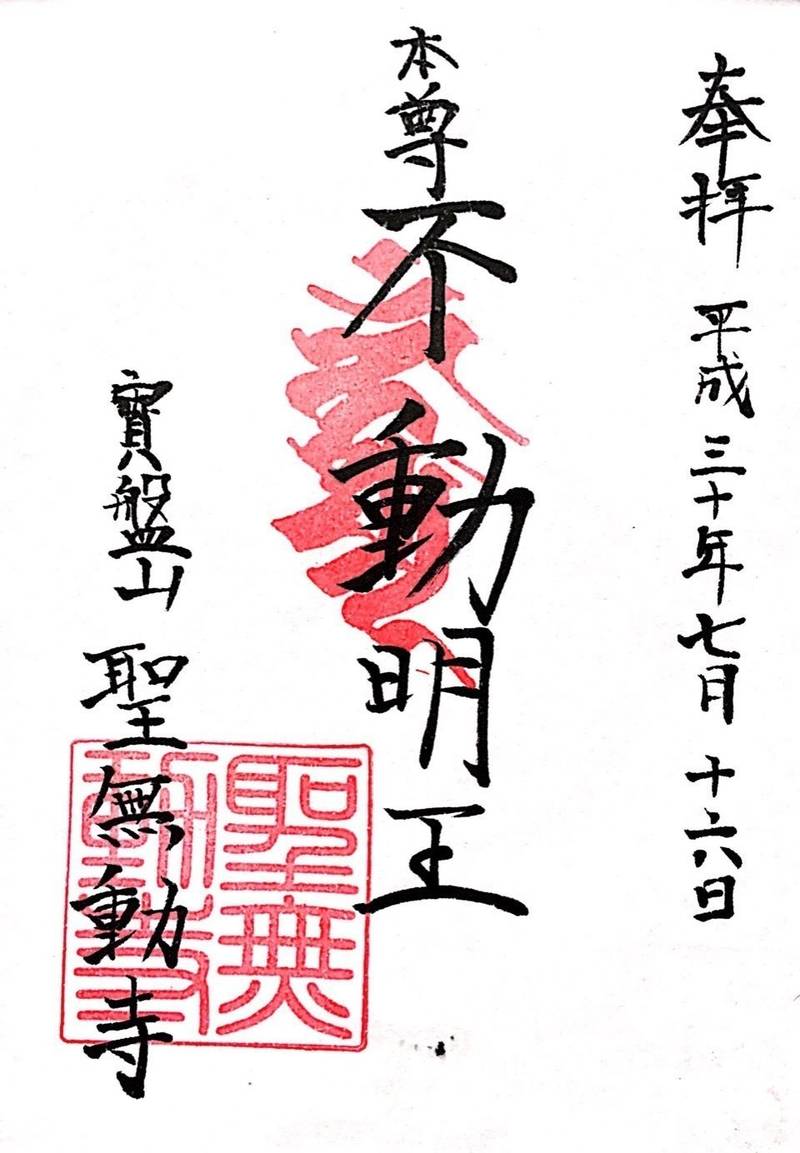 奉拝 平成三十年七月十六日
本尊不動明王
寳盤山 聖無動寺
聖無動寺